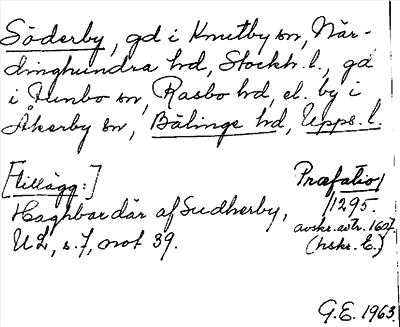 Söderby, gd i Knutby sn, När-
dinghundra hd, Stockh. l., gd
i Funbo sn, Rasbo hd, el. by i
Åkerby sn, Bälinge hd, Upps. l.
[tillägg:]
Haghbardär af Sudherby,
UL, s. 7, not 39.
Præfatio
1295.
avskr. avtr. 1607.
(hskr. E.)
G.E. 1963.